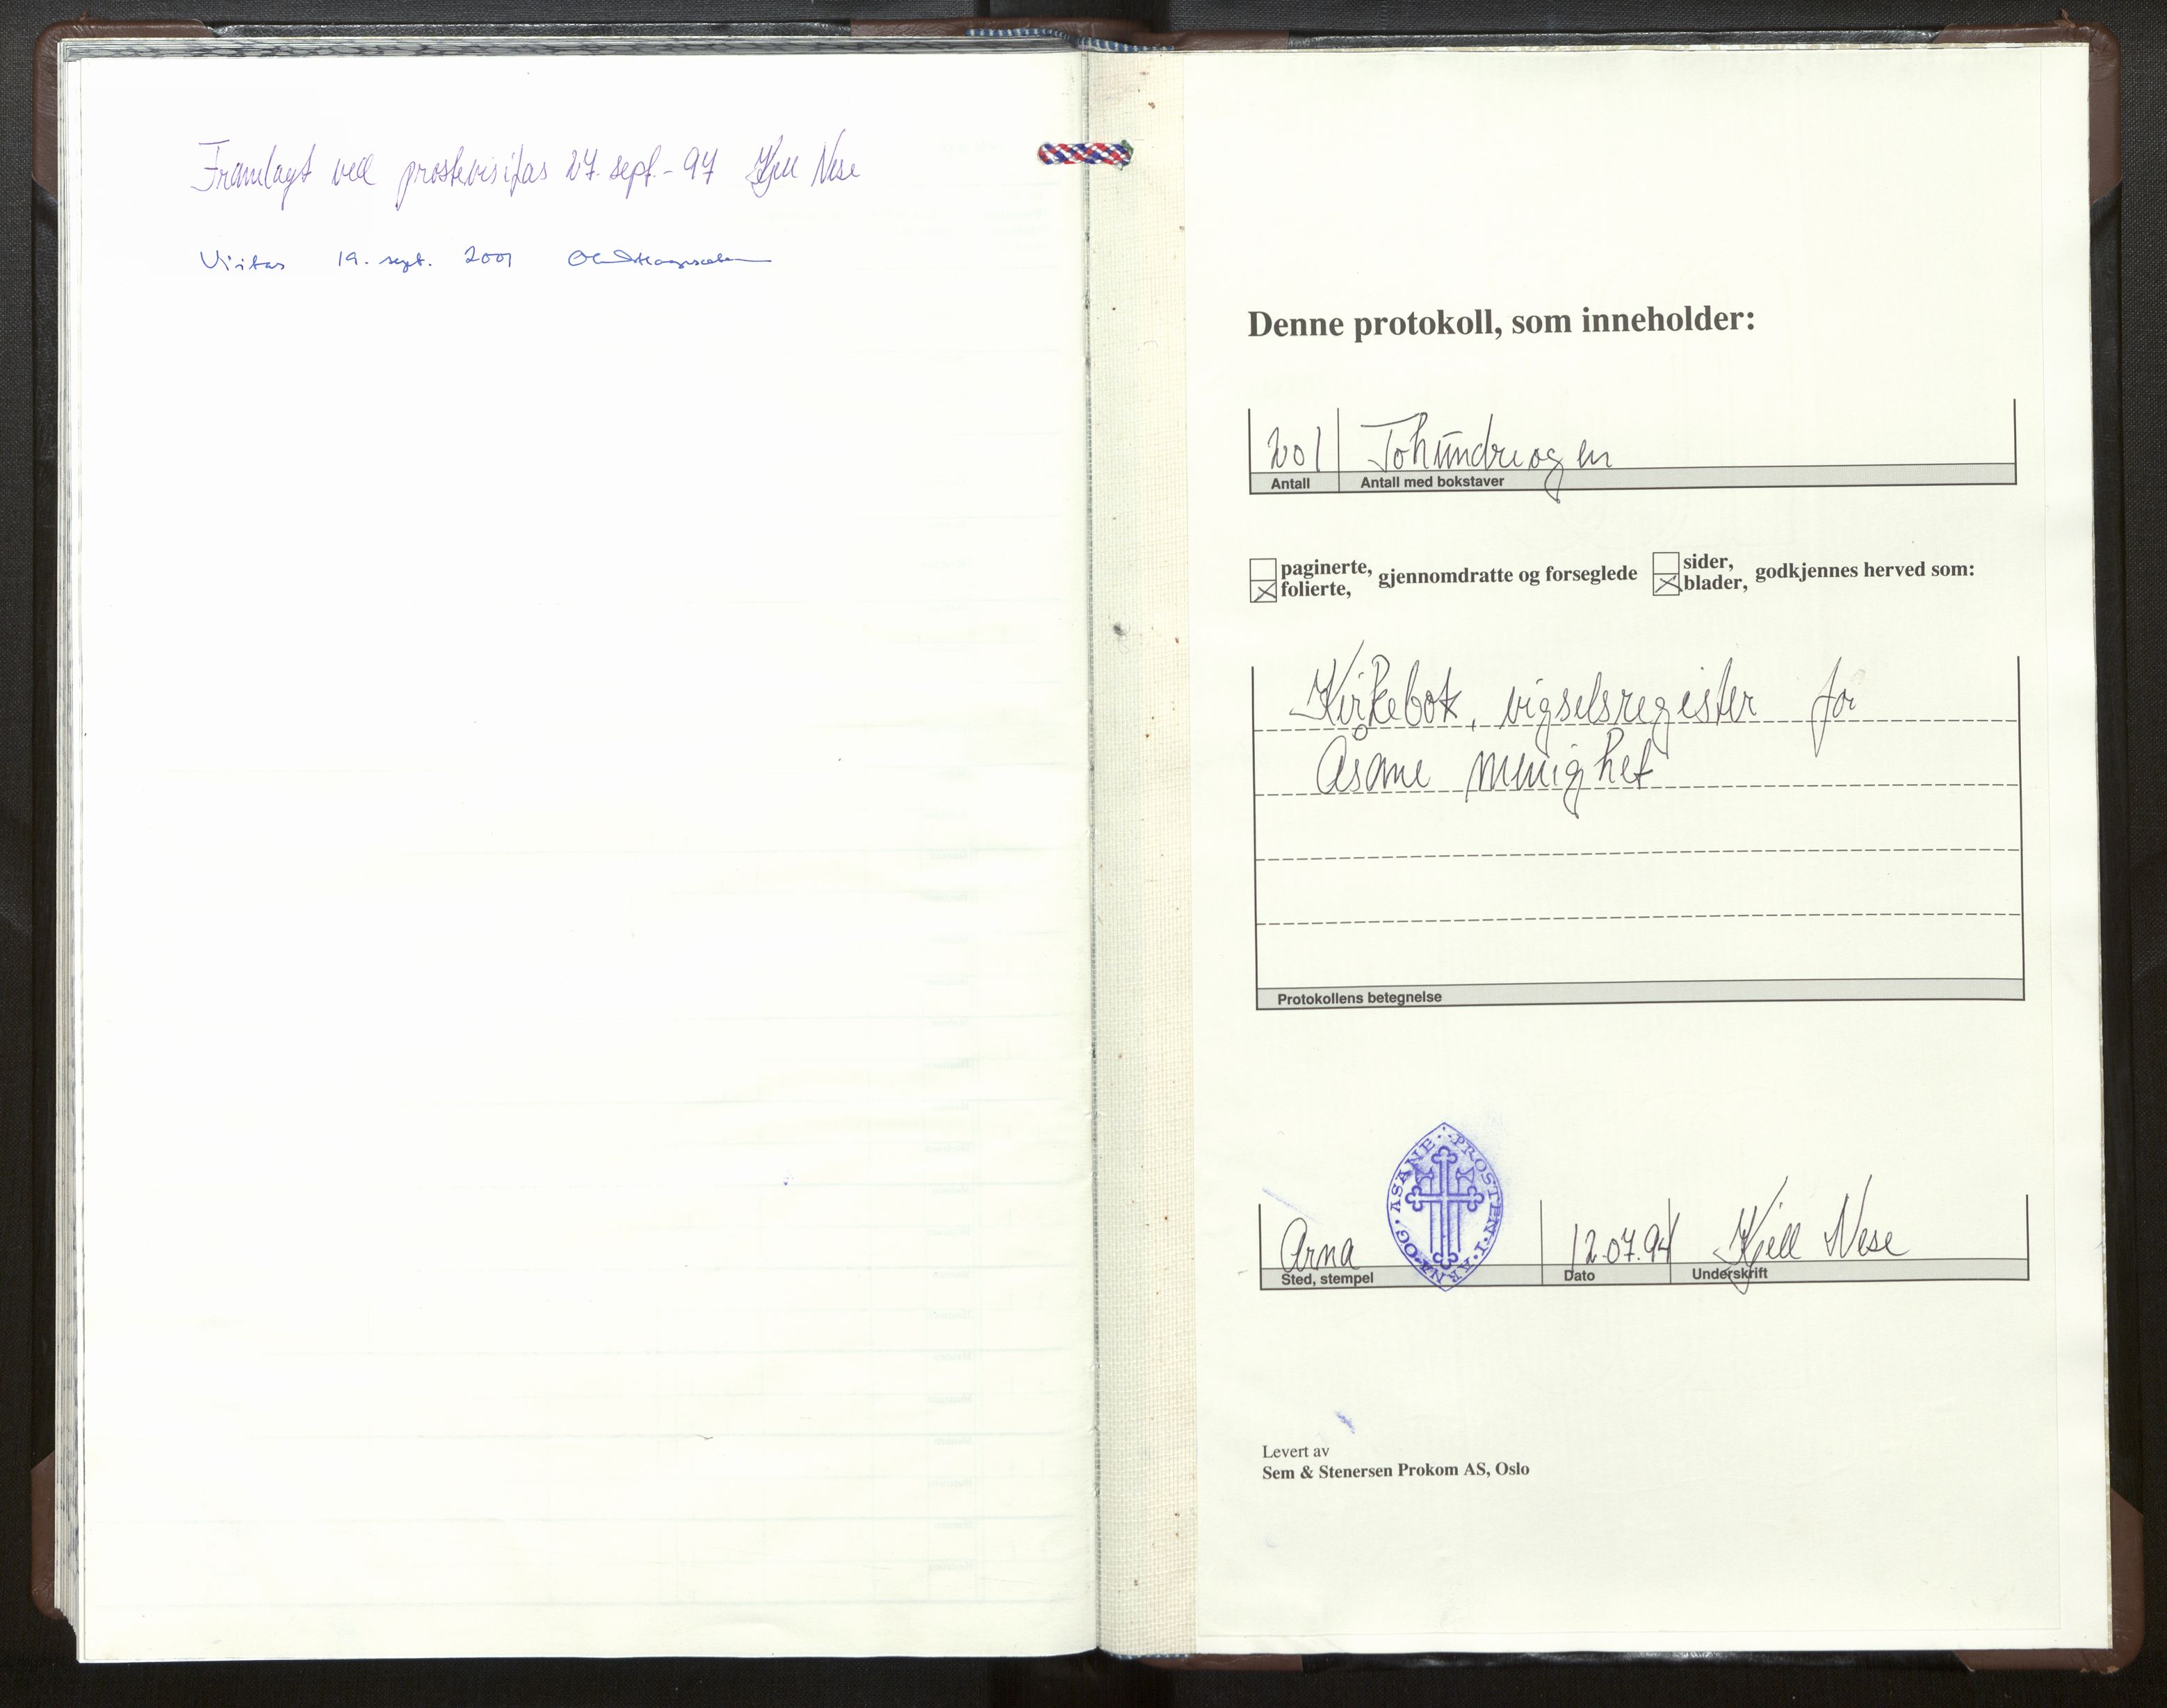 Framlagt ved prostevisitas 27. sept. - 97 Kjell Nese
Visitas 19. sept. 2001
Denne protokoll, som inneholder:
201 Tohundre og en
Antall Antall med bokstaver
paginerte,
folierte,
gjennomdratte og forseglede
sider,
blader,
godkjennes herved som:
Kirkebok, vigselsregister for
Åsane menighet
Protokollens betegnelse
PROSTEN · I · ARNA · OG · ÅSANE
Arna 12.07.94 Kjell Nese
Sted, stempel Dato Underskrift
Levert av
Sem & Stenersen Prokom AS, Oslo